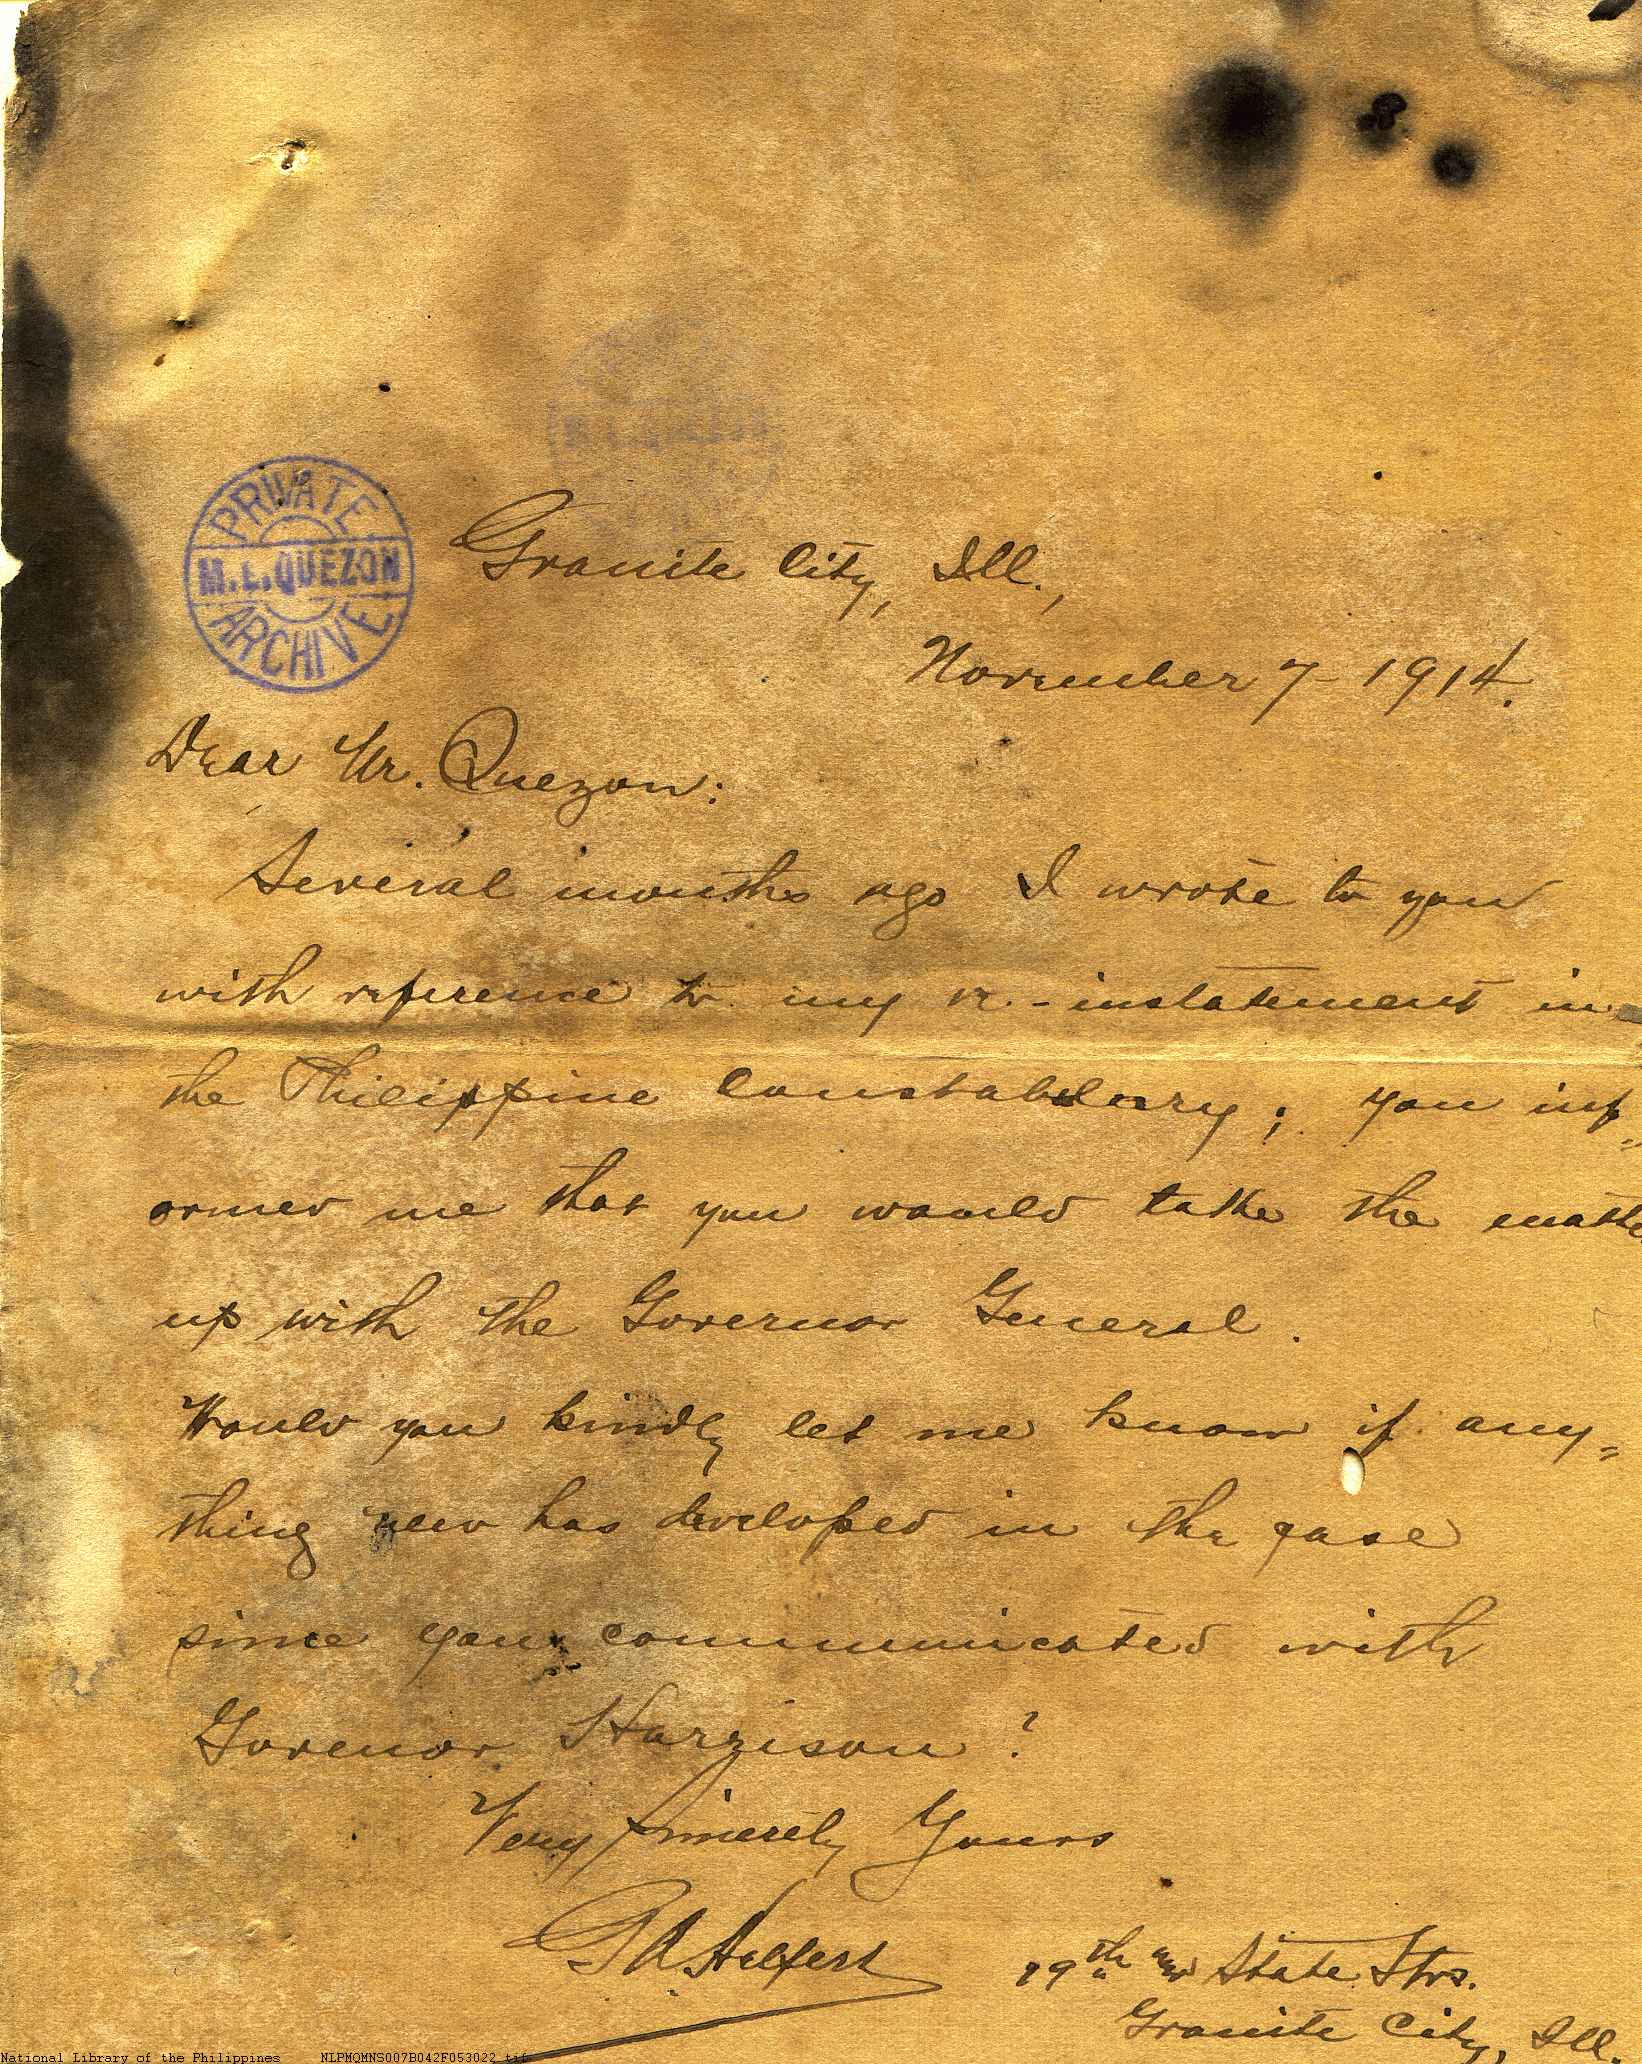 PRIVATE
M.L.QUEZON
ARCHIVE
Granite City, Ill.,
November 7 - 1914.
Dear Mr. Quezon:
Several months ago I wrote to you
with reference to my re-instatement in
the Philippine Constabulary; you inf-
ormed me that you would take the matte
up with the Governor General.
Would you kindly let me know if any-
thing new has developed in the case
since you communicated with
Govenor Harrison?
Very Sincerely Yours
Helfert
19th and State Strs.
Granite City, Ill.
National Library of the Philippines NLPMQMNS007B042F053022.tif